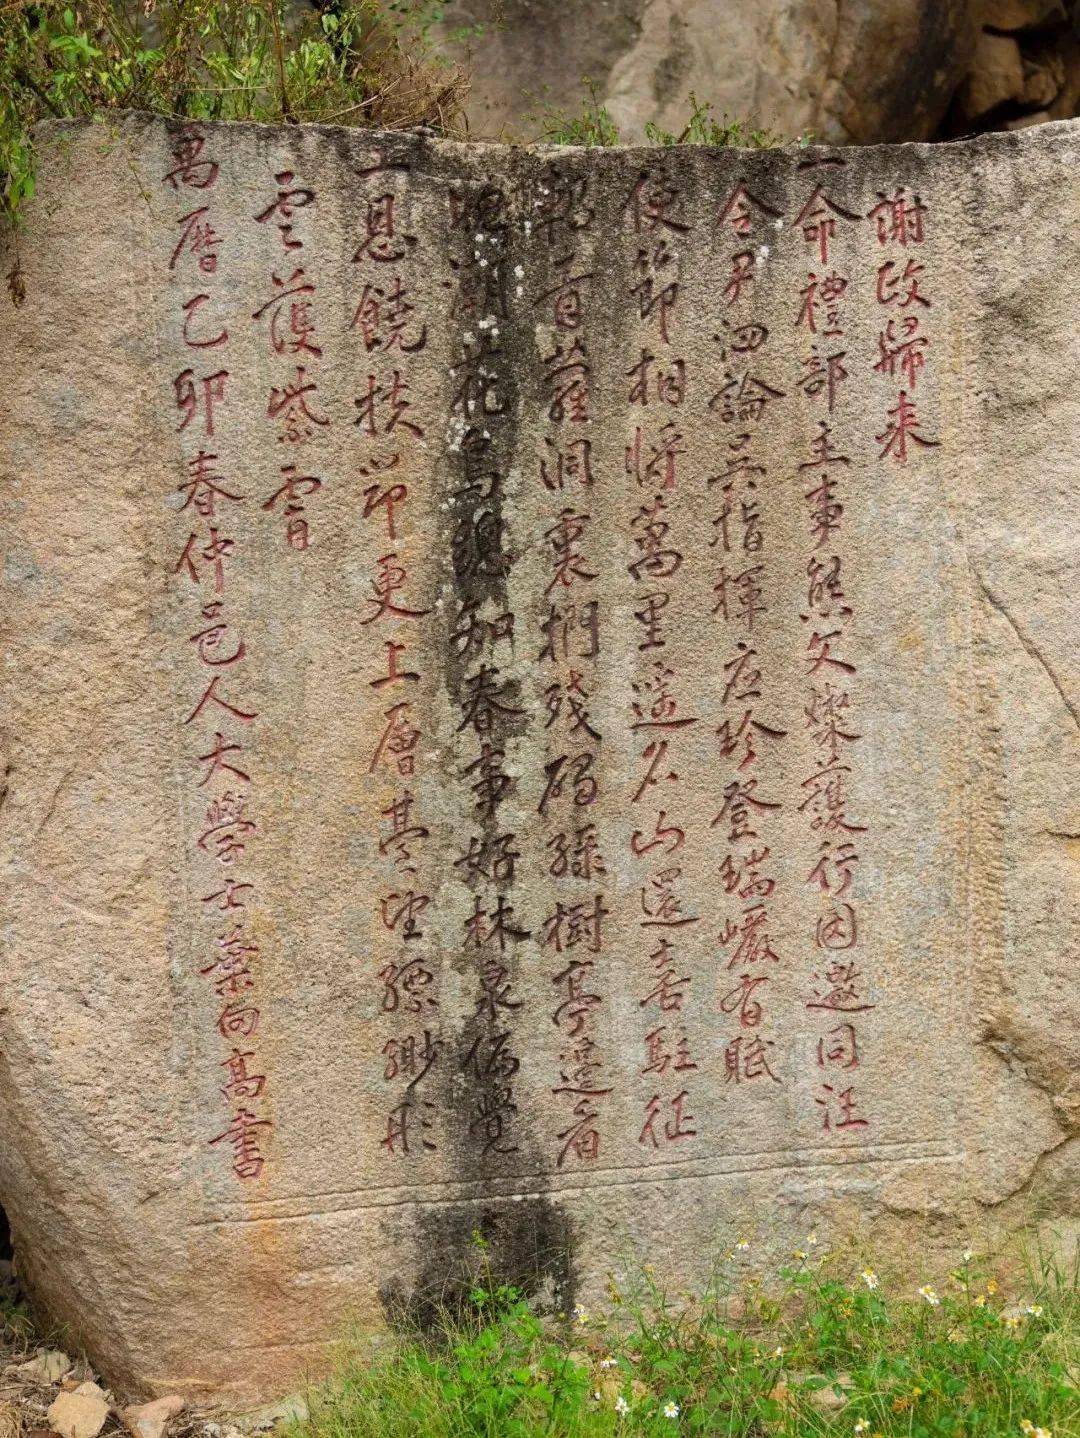 謝政歸来
上命禮部主事熊文燦護行因邀同汪
令尹泗論吴指揮应珍登瑞巖有賦
使節相將萬里遥名山還喜駐征
軺青蘿洞裏捫殘碣緑樹亭邊看
晚潮花鳥總知春事好林泉偏覺
上恩饒扶筇更上層臺望縹緲彤
雲護紫霄
萬曆乙卯春仲邑人大學士葉向高書